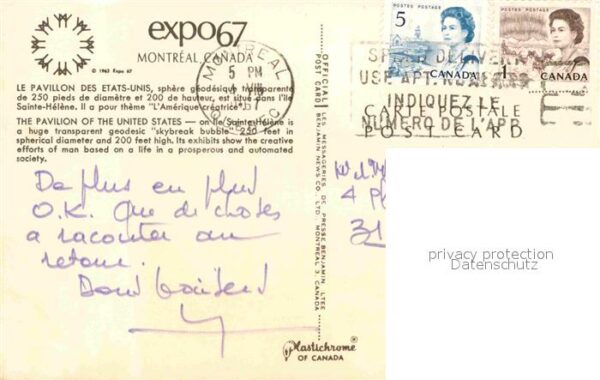 expo67
MONTRÉAL, CANADA
© 1963 Expo 67
LE PAVILLON DES ETATS-UNIS, sphère géodésique transparente
de 250 pieds de diamètre et 200 de hauteur, est situé dans l'île
Sainte-Hélène. Il a pour thème "L'Amérique créatrice".
THE PAVILION OF THE UNITED STATES — on Ile Sainte-Hélène is
a huge transparent geodesic "skybreak bubble" 250 feet in
spherical diameter and 200 feet high. Its exhibits show the creative
efforts of man based on a life in a prosperous and automated
society.
De plus en plus
O.K. Que de choses
a raconter au
retour.
OFFICIAL POST CARD
LES MESSAGERIES DE PRESSE BENJAMIN ENR.
BENJAMIN NEWS CO., LTD., MONTREAL 3, CANADA
Plastichrome®
OF CANADA
MONTREAL
5 PM
5
POSTES POSTAGE
CANADA
1
POSTES POSTAGE
CANADA
SPEED DELIVERY
USE APT. NUMBERS
INDIQUEZ LE
NUMÉRO DE L'APP
CARTE POSTALE
POSTCARD
4
31
privacy protection
Datenschutz